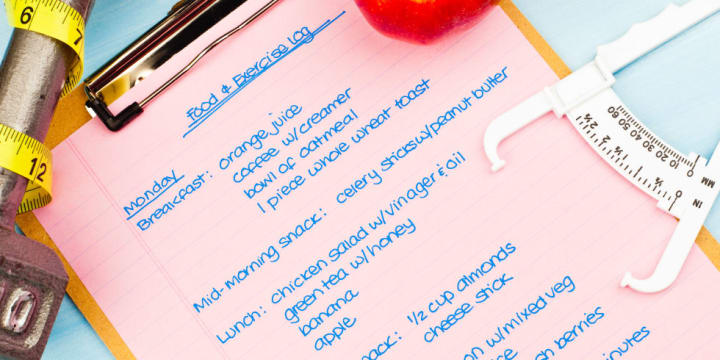 Food & Exercise Log
Monday
Breakfast: orange juice
coffee w/creamer
bowl of oatmeal
1 piece whole wheat toast
Mid-morning snack: celery sticks w/peanut butter
Lunch: chicken salad w/vinager & oil
green tea w/honey
banana
apple
1/2 cup almonds
cheese stick
w/mixed veg
berries
6
7
12
0 10 20 30 40 50 60
MM
0 1/2 1 1 1/2 2 2 1/2
IN
0